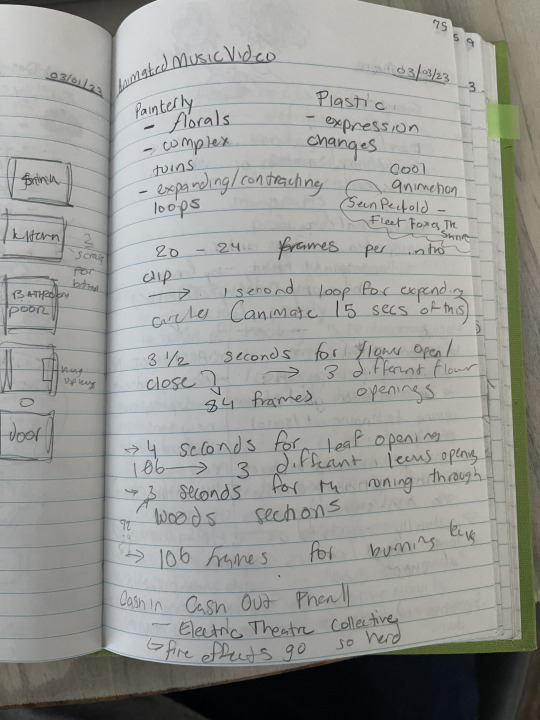 03/01/23
Kitchen
2
for
door
75
5 9
3
Animated Music Video
03/03/23
Painterly
- florals
- complex
turns
- expanding/contracting
loops
Plastic
- expression
changes
cool
animation
Sean Pecfold -
Fleet Foxes The
20 - 24 frames per intro
clip
→ 1 second loop for expending
circles (animate 15 secs of this)
3 1/2 seconds for flower open/
close → 3 different flower
openings
84 frames
→ 4 seconds for leaf opening
106 → 3 diffcant leaus opening
→ 3 seconds for runing through
woods sections
92
→ 106 frames for burning
Cash in Cash Out Pharrell
- Electric Theatre Collective
↳ fire effects go so hard